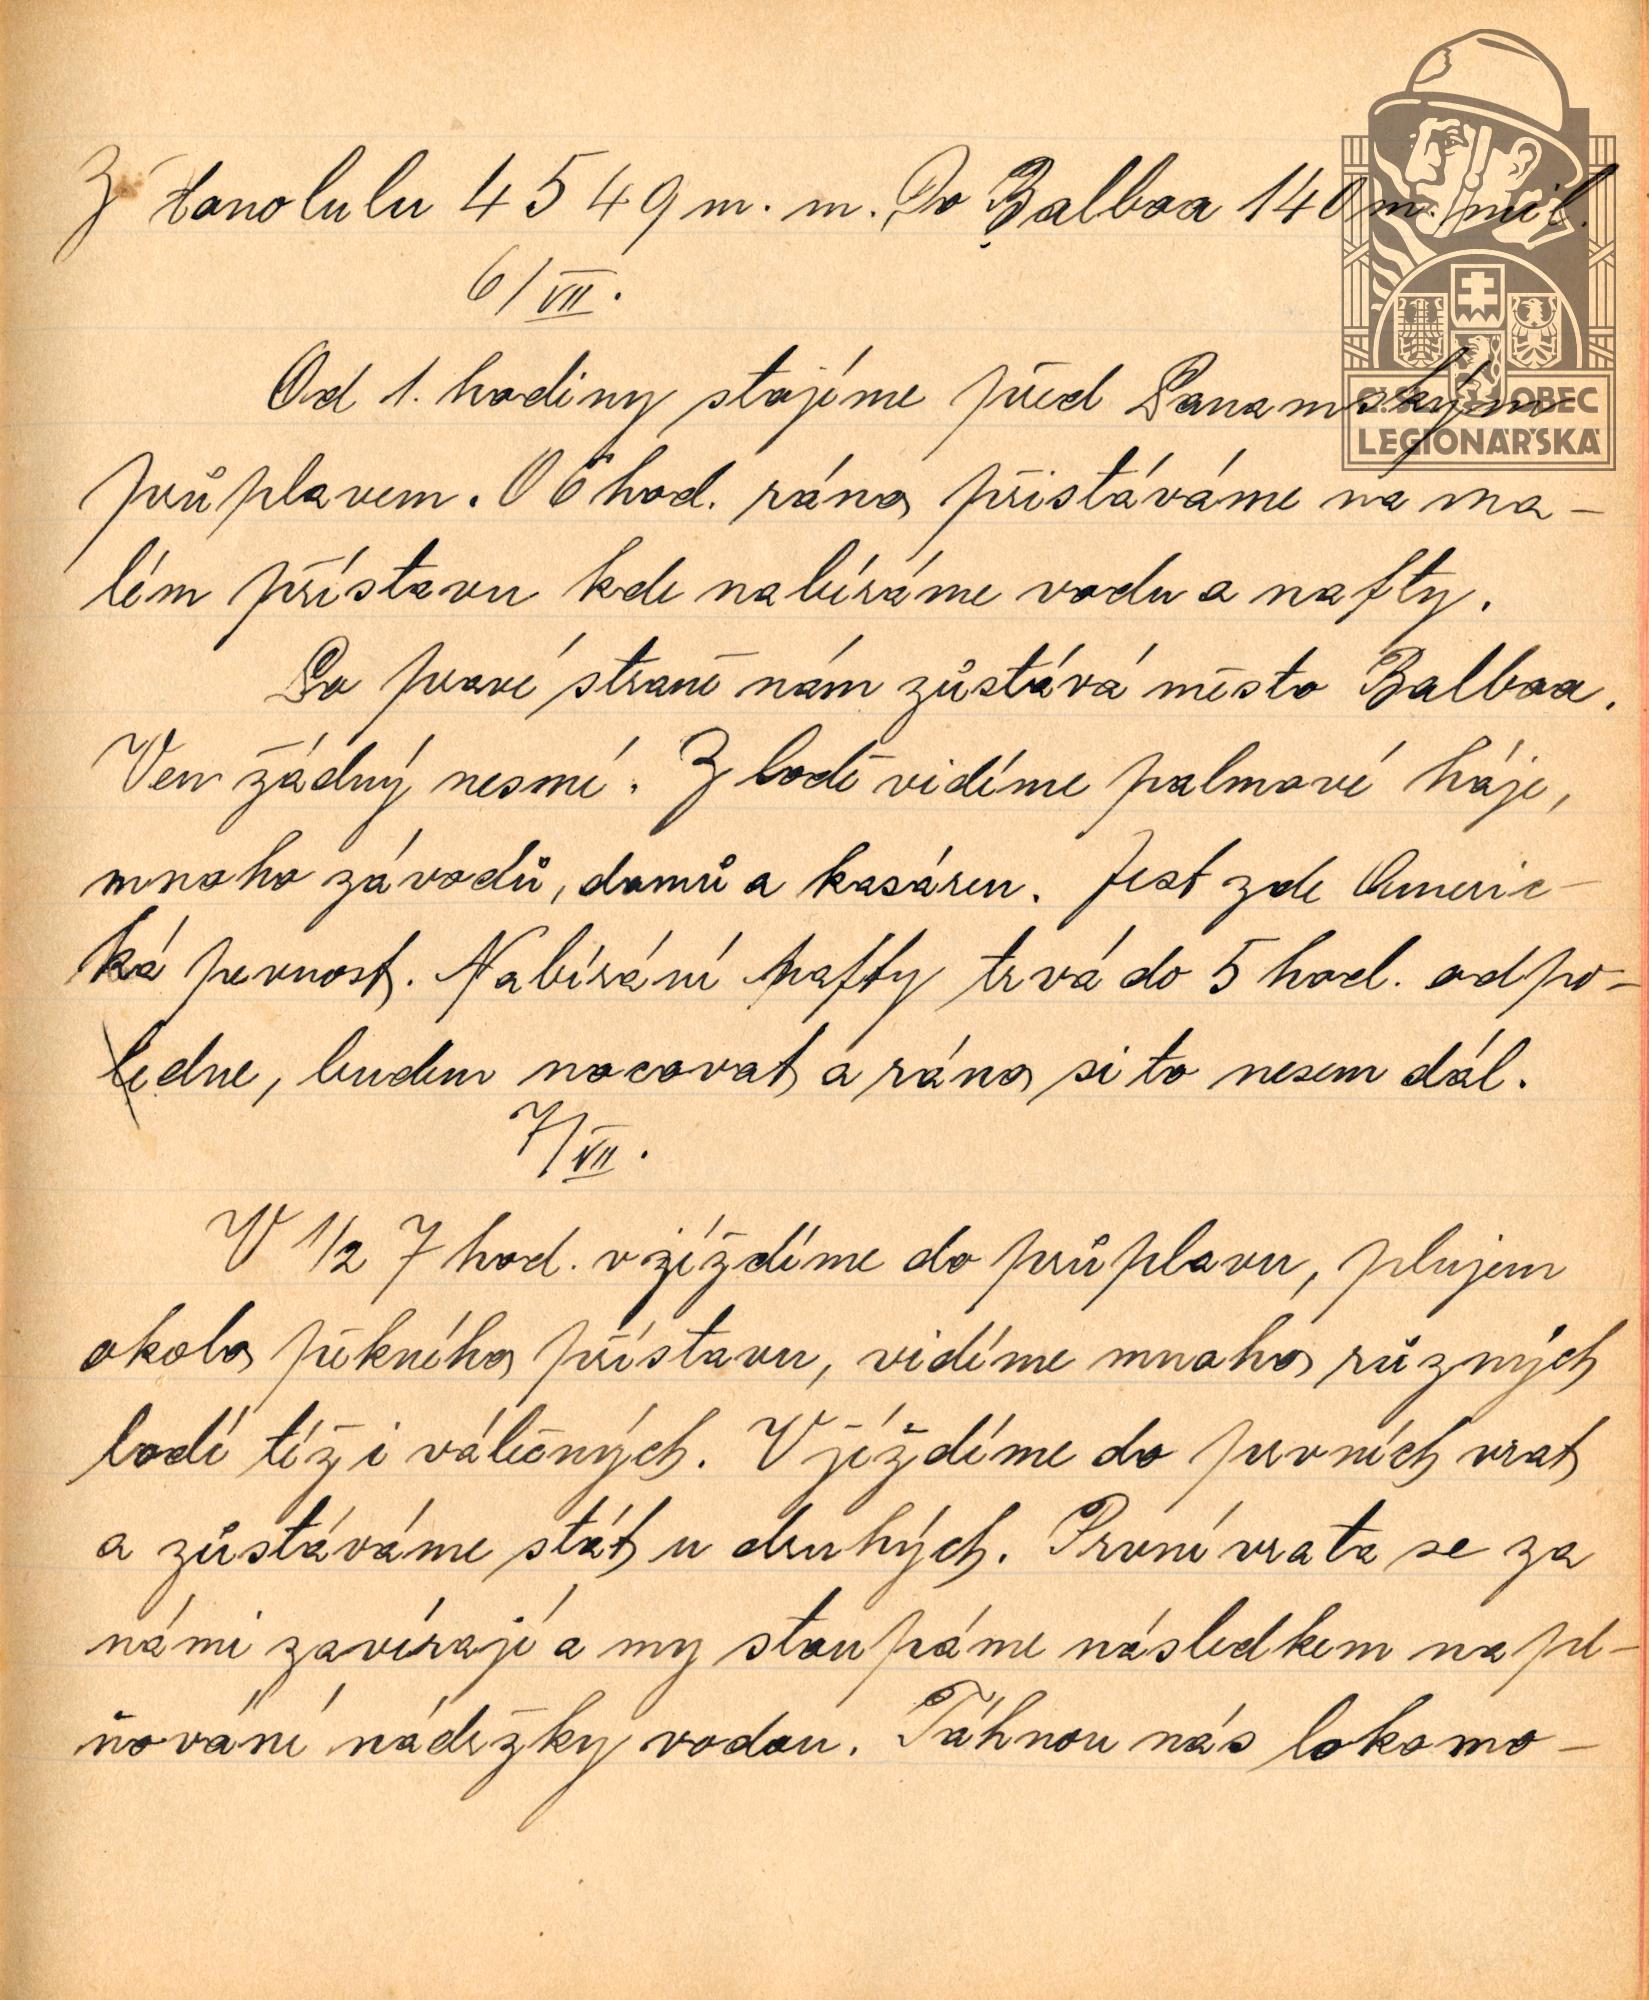 Z Honolulu 4549 m. m. Do Balboa 140 m. mil.
6/VII.
Od 1. hodiny stojíme před Panamským
průplavem. O 6 hod. ráno přistáváme na ma-
lém přístavu kde nabíráme vodu a nafty.
Po pravé straně nám zůstává město Balboa.
Ven žádný nesmí. Z lodě vidíme palmové háje,
mnoho závodů, domů a kasáren. Jest zde Americ-
ká pevnost. Nabírání nafty trvá do 5 hod. odpo-
ledne, budem nocovat a ráno si to nesem dál.
7/VII.
V 1/2 7 hod. vjíždíme do průplavu, plujem
okolo pěkného přístavu, vidíme mnoho různých
lodí též i válečných. Vjíždíme do prvních vrat
a zůstáváme stát u druhých. První vrata se za
námi zavírají a my stoupáme následkem napl-
ňování nádržky vodou. Táhnou nás lokomo-
Č.S. OBEC
LEGIONÁŘSKÁ